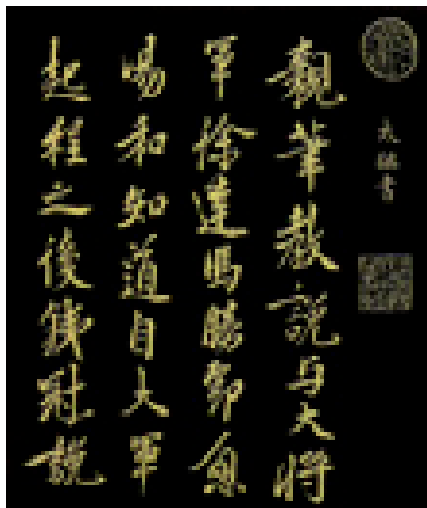 太祖書
親筆教說与大將
軍徐達馮勝鄧愈
湯和知道自大軍
起程之後
說